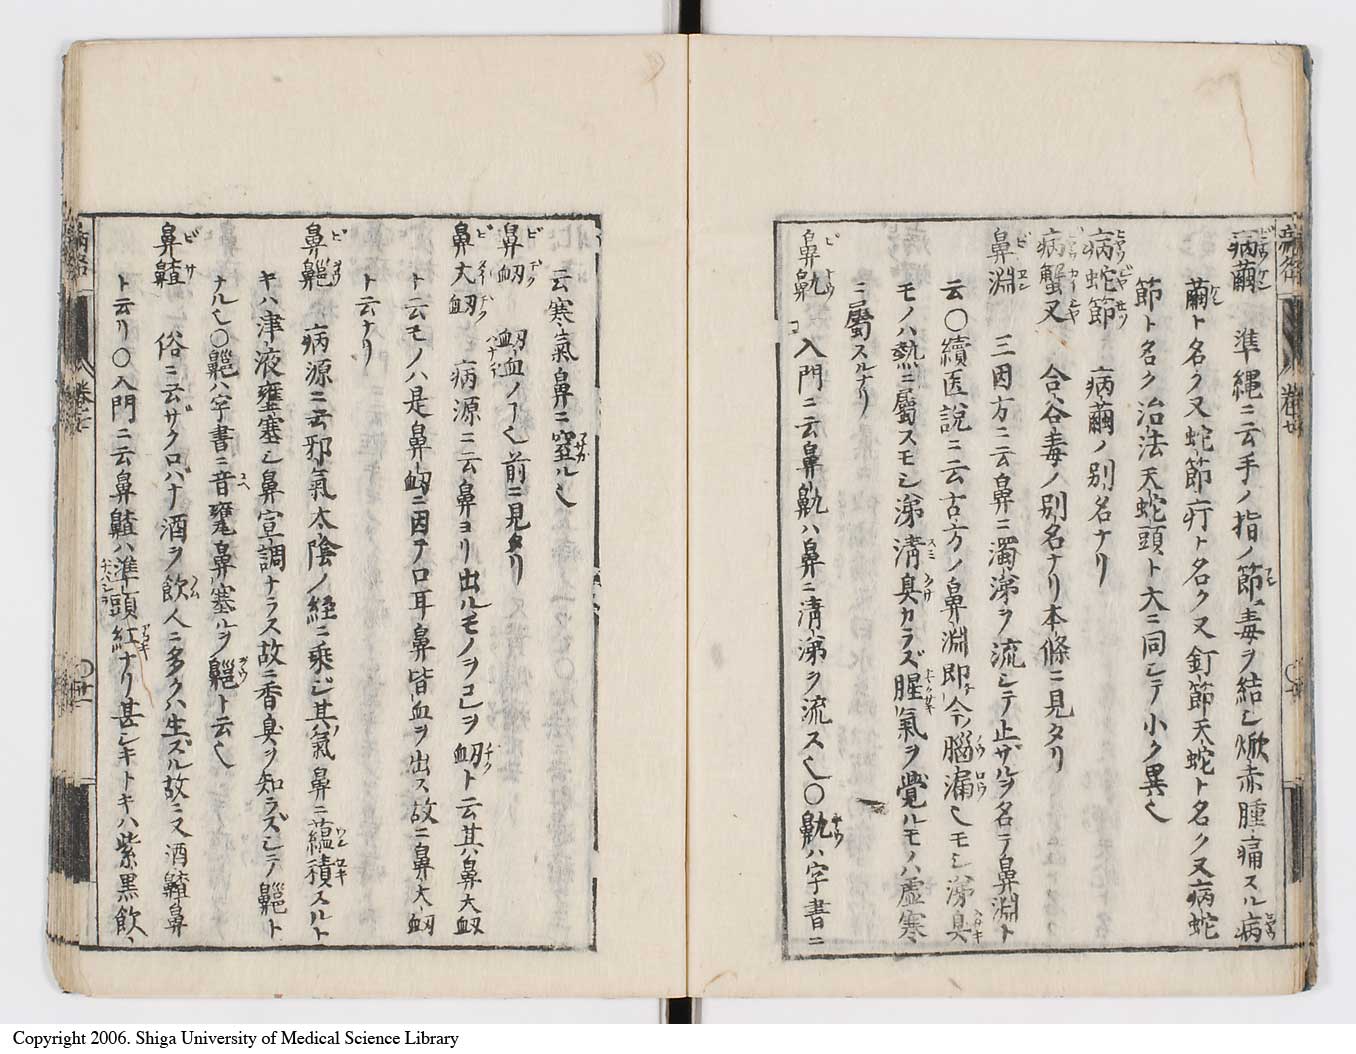 病繭 準縄ニ云手ノ指ノ節毒ヲ結シ焮赤腫痛スル病
繭ト名ク又蛇節疔ト名ク又釘節天蛇ト名ク又病蛇
節ト名ク治法天蛇頭ト大ニ同シテ小ク異也
病蛇節 病繭ノ別名ナリ
病蟹叉 合谷毒ノ別名ナリ本條ニ見タリ
鼻淵 三因方ニ云鼻ニ濁涕ヲ流シテ止ザルヲ名テ鼻淵ト
云〇續医説ニ云古方ノ鼻淵即今ノ腦漏也モシ涕臭
モノハ熱ニ屬スモシ涕清臭カラズ腥氣ヲ覺ルモノハ虚寒
ニ屬スルナリ
鼻鼽 入門ニ云鼻鼽ハ鼻ニ清涕ヲ流ス也〇鼽ハ字書ニ
云寒氣鼻ニ窒ル也
鼻衂 衂血ノ也前ニ見タリ
鼻大衂 病源ニ云鼻ヨリ出ルモノヲコレヲ衂ト云其ハ鼻大衂
ト云モノハ是鼻衂ニ因テ口耳鼻皆血ヲ出ス故ニ鼻大衂
ト云ナリ
鼻齆 病源ニ云邪氣太陰ノ経ニ乘ジ其氣鼻ニ蘊積スルト
キハ津液壅塞シ鼻宣調ナラス故ニ香臭ヲ知ラズシテ齆ト
ナル也〇齆ハ字書ニ音甕鼻塞ルヲ齆ト云也
鼻齄 俗ニ云ザクロバナ酒ヲ飲人ニ多クハ生ズル故ニ又酒齄鼻
ト云リ〇入門ニ云鼻齄ハ準頭紅ナリ甚シキトキハ紫黒飲
Copyright 2006. Shiga University of Medical Science Library